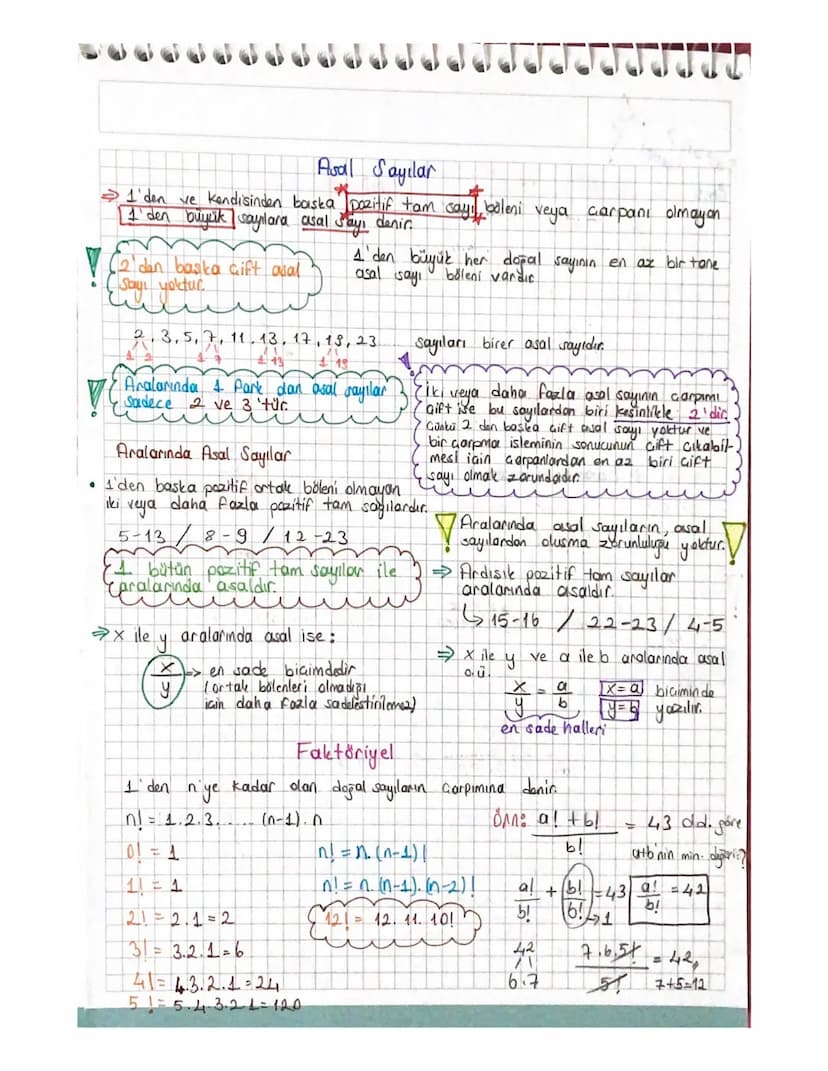 Asal Sayılar
⇒ 1'den ve kendisinden başka pozitif tam sayı böleni veya çarpanı olmayan
1'den büyük sayılara asal sayı denir.
! 2'den başka çift asal
sayı yoktur.
1'den büyük her doğal sayının en az bir tane
asal sayı böleni vardır
2, 3, 5, 7, 11, 13, 17, 19, 23 sayıları birer asal sayıdır.
1 2 1 7 1 13 1 19
! Aralarında 1 fark olan asal sayılar
sadece 2 ve 3'tür.
! İki veya daha fazla asal sayının çarpımı
çift ise bu sayılardan biri kesinlikle 2'dir.
Çünkü 2 den başka çift asal sayı yoktur ve
bir çarpma işleminin sonucunun çift çıkabil-
mesi için çarpanlardan en az biri çift
sayı olmak zorundadır.
Aralarında Asal Sayılar
• 1'den başka pozitif ortak böleni olmayan
iki veya daha fazla pozitif tam sayılardır.
5-13 / 8-9 / 12-23
1 bütün pozitif tam sayılar ile
aralarında asaldır.
! Aralarında asal sayıların, asal !
sayılardan oluşma zorunluluğu yoktur.
⇒ Ardışık pozitif tam sayılar
aralarında asaldır.
↳ 15-16 / 22-23 / 4-5
⇒ x ile y aralarında asal ise:
x/y ⇒ en sade biçimdedir
(ortak bölenleri olmadığı
için daha fazla sadeleştirilemez)
⇒ x ile y ve a ile b aralarında asal
o.ü.
x/y = a/b x=a biçiminde
y=b yazılır.
en sade halleri
Faktöriyel
1'den n'ye kadar olan doğal sayıların çarpımına denir.
n! = 1.2.3..... (n-1).n
0! = 1
1! = 1
2! = 2.1=2
3! = 3.2.1=6
4! = 4.3.2.1=24
5! = 5.4.3.2.1=120
n! = n.(n-1)!
n! = n.(n-1).(n-2)!
12! = 12.11.10!
ÖRN: a!+b!/b! = 43 old. göre
a+b'nin min. değeri?
a!/b! + b!/b! = 43 a!/b! = 42
→1
42
6.7
7.6.5!/5! = 42,
7+5=12